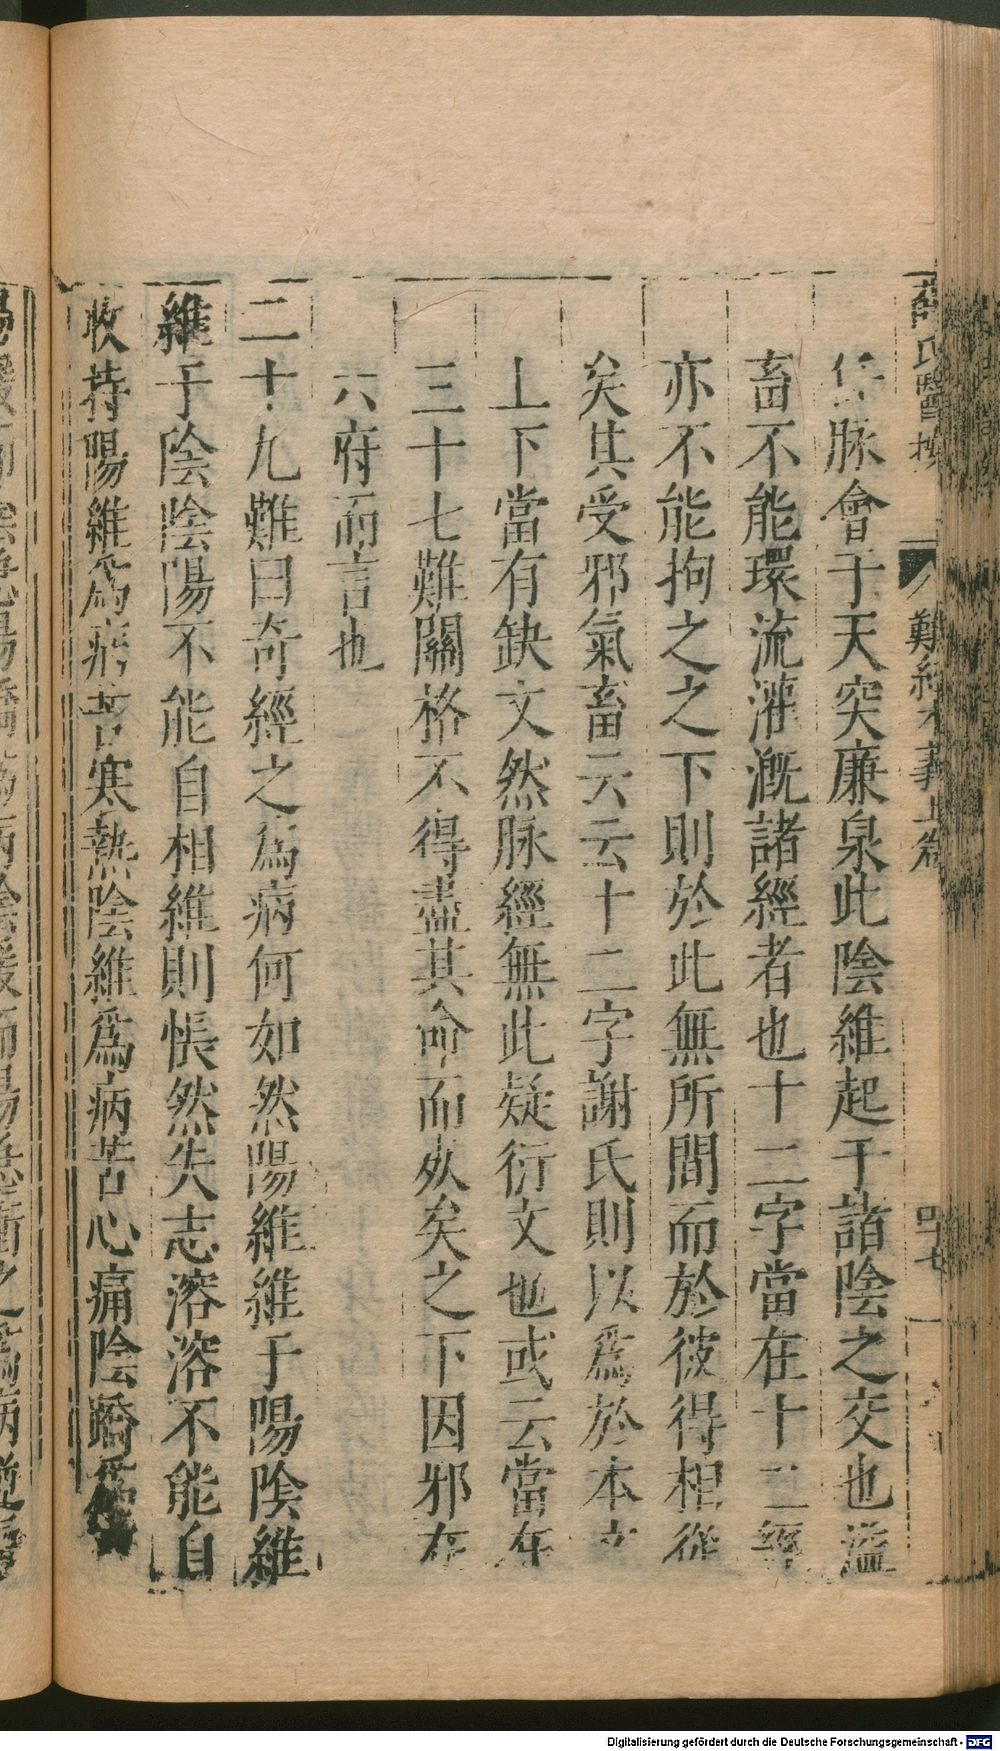 薛氏醫按 難經本義上卷 四十七
脉會于天突廉泉此陰維起于諸陰之交也溢
畜不能環流灌漑諸經者也十二字當在十二經
亦不能拘之之下則於此無所間而於彼得相從
矣其受邪氣畜云云十二字謝氏則以爲於本文
上下當有缺文然脉經無此疑衍文也或云當在
三十七難關格不得盡其命而死矣之下因邪在
六府而言也
二十九難曰奇經之爲病何如然陽維維于陽陰維
維于陰陰陽不能自相維則悵然失志溶溶不能自
收持陽維爲病苦寒熱陰維爲病苦心痛陰蹻爲
Digitalisierung gefördert durch die Deutsche Forschungsgemeinschaft - DFG